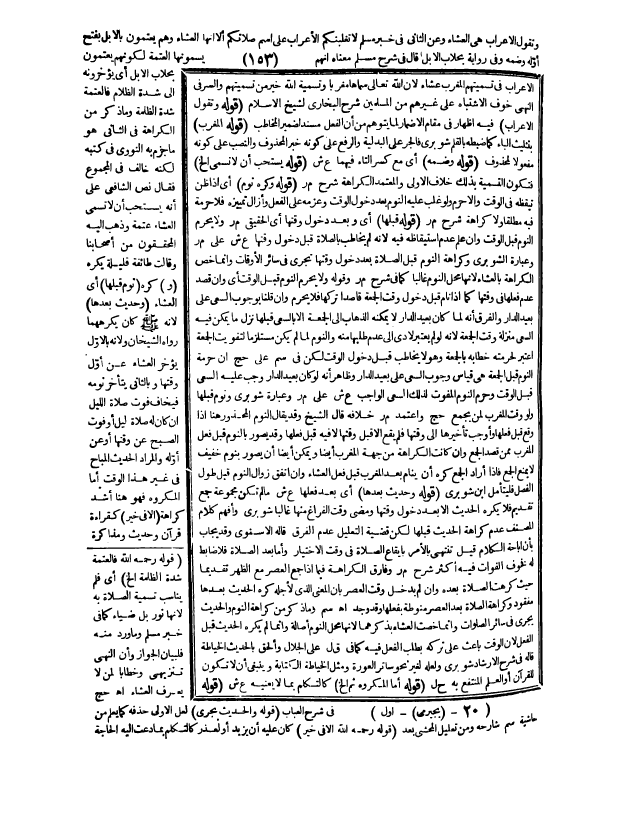 وتقول الاعراب هى العشاء وعن الثانى فى خبر مسلم لا تغلبنكم الأعراب على اسم صلاتكم ألا انها العشاء وهم يعتمون بالابل بفتح
أوله وضمه وفى رواية بحلاب الابل قال فى شرح مسلم معناه انهم (١٥٣) يسمونها العتمة لكونهم يعتمون
بحلاب الابل أى يؤخرونه
الى شدة الظلام فالعتمة
شدة الظلمة وما ذكر من
الكراهة فى الثانى هو
ما جزم به النووى فى كتبه
لكنه خالف فى المجموع
فقال نص الشافعى على
أنه يستحب أن لا تسمى
العشاء عتمة وذهب اليه
المحققون من أصحابنا
وقالت طائفة قليلة يكره
(و) كره (نوم قبلها) أى
العشاء (وحديث بعدها)
لانه ﷺ كان يكرههما
رواه الشيخان ولانه بالاول
يؤخر العشاء عن أول
وقتها وبالثانى يتأخر نومه
فيخاف فوت صلاة الليل
ان كان له صلاة ليل أو فوت
الصبح عن وقتها أو عن
أوله والمراد الحديث المباح
فى غير هذا الوقت أما
المكروه فهو هنا أشد
كراهة (الا فى خير) كقراءة
قرآن وحديث ومذاكرة
الاعراب فى تسميتهم المغرب عشاء لان الله تعالى سماها مغربا وتسمية الله خير من تسميتهم والسر فى
النهى خوف الاشتباه على غيرهم من المسلمين شرح البخارى لشيخ الاسلام (قوله وتقول
الاعراب) فيه اظهار فى مقام الاضمار لما يتوهم من أن الفعل مسند لضمير المخاطب (قوله المغرب)
بتثليث الباء كما ضبطه بالقلم شوبرى فالجر على البدلية والرفع على كونه خبر المحذوف والنصب على كونه
مفعولا لمحذوف (قوله وضمه) أى مع كسر التاء فيهما ع ش (قوله يستحب أن لا تسمى الخ)
فتكون التسمية بذلك خلاف الاولى والمعتمد الكراهة شرح م ر (قوله وكره نوم) أى اذا ظن
تيقظه فى الوقت والا حرم ولو غلب عليه النوم بعد دخول الوقت وعزمه على الفعل وأزال تمييزه فلا حرمة
فيه مطلقا ولا كراهة شرح م ر (قوله قبلها) أى وبعد دخول وقتها أى الحقيقى م ر ولا يحرم
النوم قبل الوقت وان علم عدم استيقاظه فيه لانه لم يخاطب بالصلاة قبل دخول وقتها ع ش على م ر
وعبارة الشوبرى وكراهة النوم قبل الصلاة بعد دخول وقتها تجرى فى سائر الأوقات وانما خص
الكراهة بالعشاء لانها محل النوم غالبا كما فى شرح م ر وقوله ولا يحرم النوم قبل الوقت أى وان قصد
عدم فعلها فى وقتها كما اذا نام قبل دخول وقت الجمعة قاصدا تركها فلا يحرم وان قلنا بوجوب السعى على
بعيد الدار والفرق أنه لما كان بعيد الدار لا يمكنه الذهاب الى الجمعة الا بالسعى قبلها نزل ما يمكن فيه
السعى منزلة وقت الجمعة لانه لو لم يعتبر لادى الى عدم طلبها منه والنوم لما لم يكن مستلزما لتفويت الجمعة
اعتبر لحرمته خطابه بالجمعة وهو لا يخاطب قبل دخول الوقت لكن فى سم على حج ان حرمة
النوم قبل الجمعة هى قياس وجوب السعى على بعيد الدار وظاهره أنه لو كان بعيد الدار وجب عليه السعى
قبل الوقت وحرم النوم المفوت لذلك السعى الواجب ع ش على م ر وعبارة شوبرى ونوم قبلها
ولو وقت المغرب لمن يجمع حج واعتمد م ر خلافه قال الشيخ وقد يقال النوم المحذور هنا اذا
وقع قبل فعلها وأوجب تأخيرها الى وقتها فلم يقع الا قبل وقتها لا فيه قبل فعلها وقد يصور بالنوم قبل فعل
المغرب ممن قصد الجمع وان كانت الكراهة من جهة المغرب أيضا ويمكن أيضا أن يصور بنوم خفيف
لا يمنع الجمع فاذا أراد الجمع كره أن ينام بعد المغرب قبل فعل العشاء وان اتفق زوال النوم قبل طول
الفصل فليتأمل ابن شوبرى (قوله وحديث بعدها) أى بعد فعلها ع ش مالم تكن مجموعة جمع
تقديم فلا يكره الحديث الا بعد دخول وقتها ومضى وقت الفراغ منها غالبا شوبرى وأفهم كلام
المصنف عدم كراهة الحديث قبلها لكن قضية التعليل عدم الفرق قاله الاسنوى وقد يجاب
بأن اباحة الكلام قبل تنتهى بالأمر بايقاع الصلاة فى وقت الاختيار وأما بعد الصلاة فلا ضابط
له فخوف الفوات فيه أكثر شرح م ر وفارق الكراهة فيما اذا جمع العصر مع الظهر تقديما
حيث كرهت الصلاة بعده وان لم يدخل وقت العصر بان المعنى الذى لأجله كره الحديث بعدها
مفقود وكراهة الصلاة بعد العصر منوطة بفعلها وقد وجد اه سم وما ذكر من كراهة النوم والحديث
يجرى فى سائر الصلوات وانما خصت العشاء بذكرهما لانها محل النوم أصالة وانما لم يكره الحديث قبل
الفعل لان الوقت باعث على تركه بطلب الفعل فيه كما فى ق ل على الجلال وألحق بالحديث الخياطة
قاله فى شرح الارشاد شوبرى ولعله لغير نحو ساتر العورة ومثل الخياطة الكتابة وينبغى أن لا تكون
للقرآن أو العلم المنتفع به ح ل (قوله أما المكروه ثم الخ) كالتكلم بما لا يعنيه ع ش (قوله
(قوله رحمه الله فالعتمة
شدة الظلمة الخ) أى فلم
يناسب تسمية الصلاة به
لانها نور بل ضياء كما فى
خبر مسلم وما ورد منه
فلبيان الجواز وأن النهى
تنزيهى وخطابا لمن لا
يعرف العشاء اه حج
(٢٠ - (بجيرمى) - اول) فى شرح العباب (قوله والحديث يجرى) لعل الاولى حذفه كما يعلم من
حاشية سم شارحه ومن تعليل المحشى بعد (قوله رحمه الله الا فى خير) كان عليه أن يزيد أو لعذر كالتكلم بما دعت اليه الحاجة